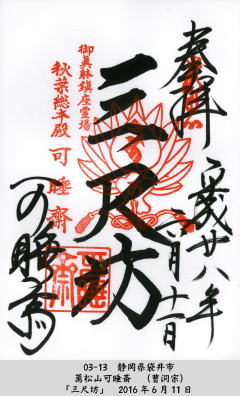 奉拝
平成廿八年
六月十一日
三尺坊
御真躰鎮座霊場
秋葉総本殿可睡斎
可睡斎
03-13 静岡県袋井市
萬松山可睡斎 （曹洞宗）
「三尺坊」 2016年6月11日